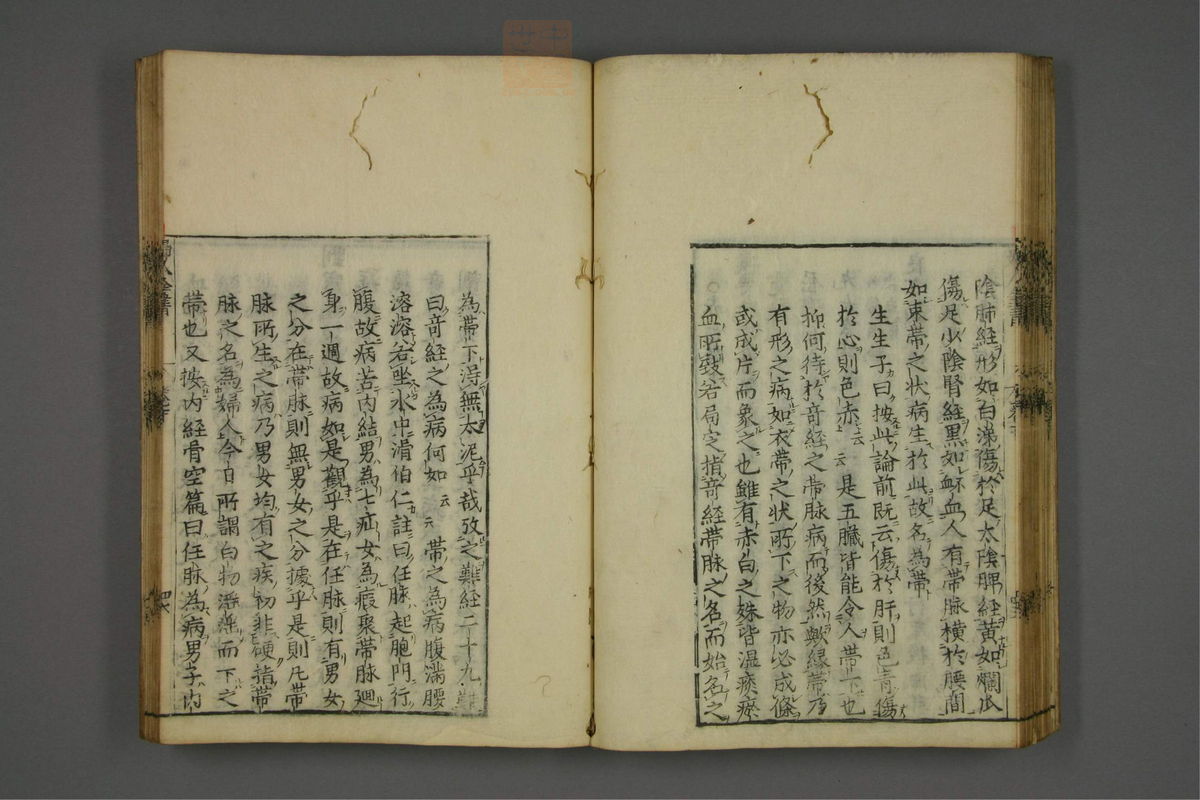 陰肺經形如白涕傷於足太陰脾經黃如爛瓜
傷足少陰腎經黑如衃血人有帶脉橫於腰間
如束帶之狀病生於此故名為帶
生生子曰按此論前既云傷於肝則色青傷
於心則色赤云云是五臟皆能令人帶下也
抑何待於奇經之帶脉病而後然歟緣帶乃
有形之病如衣帶之狀所下之物亦必成條
或成片而象之也雖有赤白之殊皆濕痰瘀
血所致若局定指奇經帶脉之名而始名之
為帶下淂無太泥乎哉攷之難經二十九難
曰奇經之為病何如云云帶之為病腹滿腰
溶溶若坐水中滑伯仁註曰任脉起胞門行
腹故病苦内結男為七疝女為瘕聚帶脉迴
身一週故病如是觀乎是在任脉則有男女
之分在帶脉則無男女之分據乎是則凡帶
脉所生之病乃男女均有之疾初非硬指帶
脉之名為婦人今日所謂白物滛溢而下之
帶也又按内經骨空篇曰任脉為病男子内